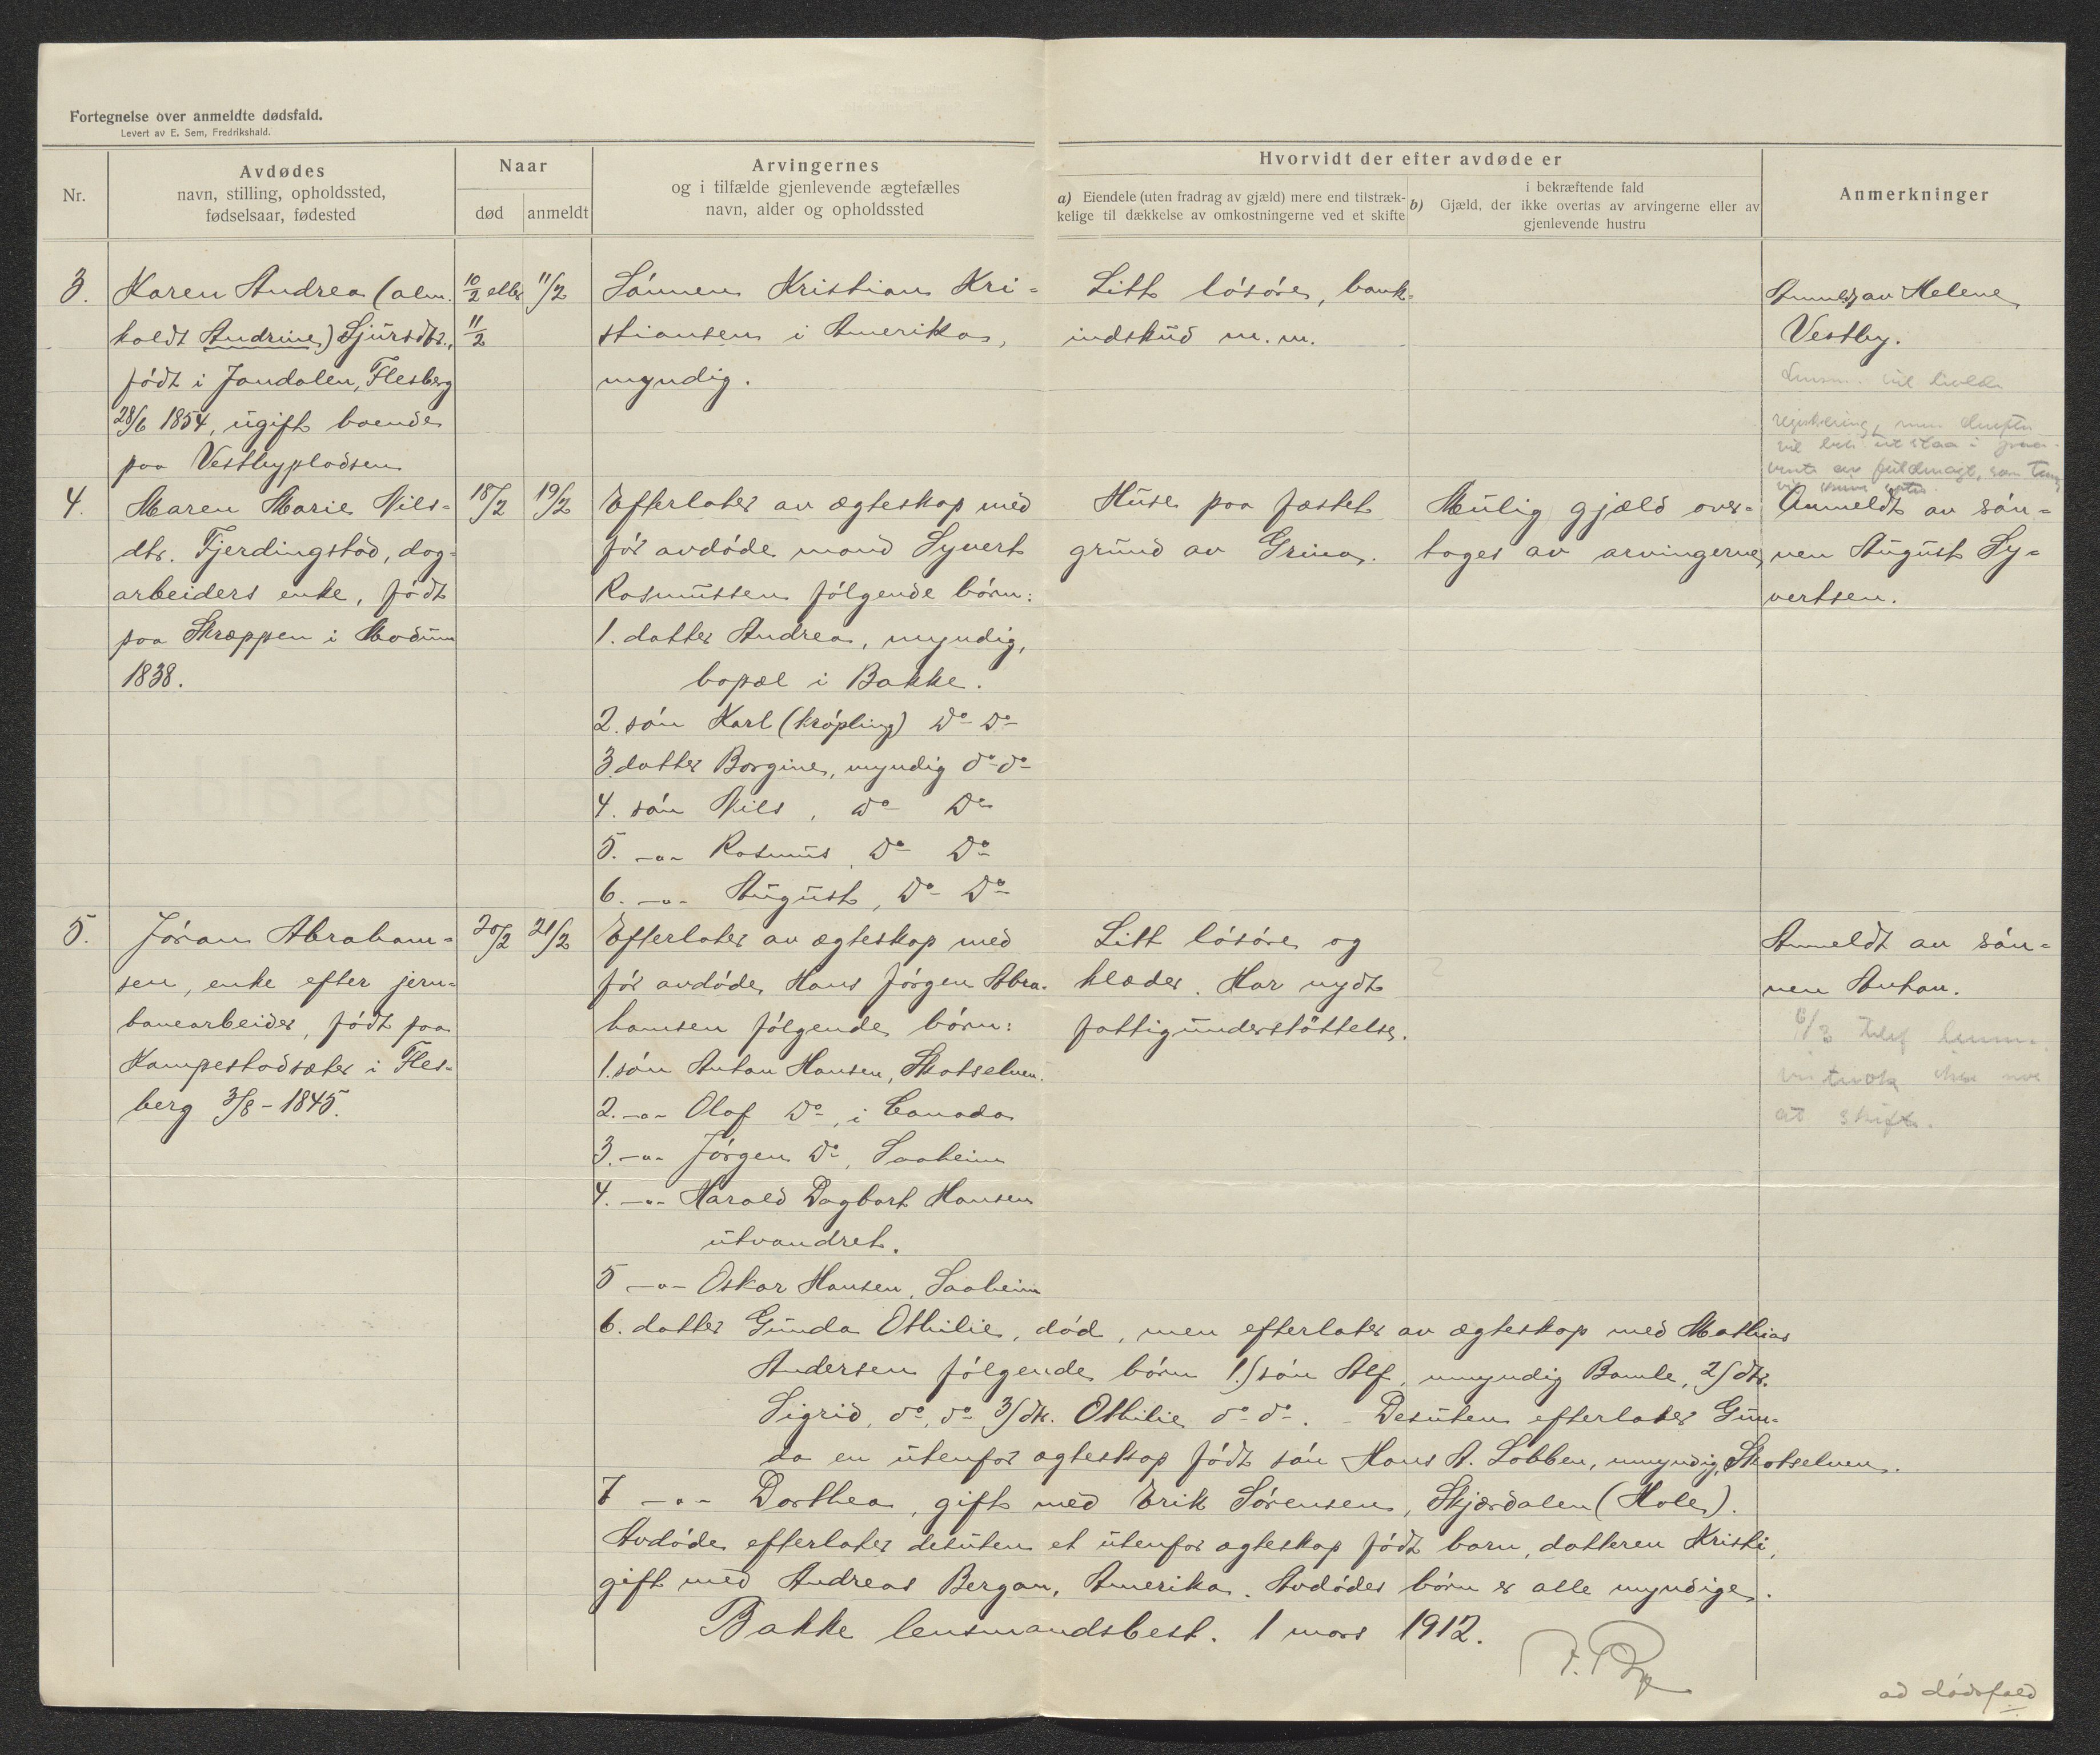 Fortegnelse over anmeldte dødsfald.
Levert av E. Sem, Fredrikshald.
Nr.
Avdødes
navn, stilling, opholdssted,
fødselsaar, fødested
Naar
død
anmeldt
Arvingernes
og i tilfælde gjenlevende ægtefælles
navn, alder og opholdssted
Hvorvidt der efter avdøde er
a) Eiendele (uten fradrag av gjæld) mere end tilstræk-
kelige til dækkelse av omkostningerne ved et skifte
i bekræftende fald
b) Gjæld, der ikke overtas av arvingerne eller av
gjenlevende hustru
Anmerkninger
3.
Karen Andrea (alm.
kaldt Andrine) Sjursdtr.,
født i Jondalen, Flesberg
28/6 1854, ugift boende
paa Vestbypladsen
10/2 eller
11/2
11/2
Sønnen Kristian Kri-
stiansen i Amerika,
myndig.
Litt løsøre, bank-
indskud m. m.
Anmeldt av Helene
Vestby.
vil holde
registrering, men
fuldmagt, som
4.
Maren Marie Nils-
dtr. Fjerdingstad, dag-
arbeiders enke, født
paa Skræppen i Modum
1838.
18/2
19/2
Efterlater av ægteskap med
før avdøde mand Syvert
Rasmussen følgende børn:
1. datter Andrea, myndig,
bopæl i Bakke.
2. søn Karl (krøpling) Do Do
3. datter Borgine, myndig do do
4. søn Nils, Do Do
5. -"- Rasmus, Do Do
6. -"- August, Do Do
Huse paa fæstet
grund av Grina.
Mulig gjæld over-
tages av arvingerne
Anmeldt av søn-
nen August Sy-
vertsen.
5.
Jøran Abraham-
sen, enke efter jern-
banearbeider, født paa
Kampestadsæter i Fles-
berg 3/8 - 1845.
20/2
21/2
Efterlater av ægteskap med
før avdøde Hans Jørgen Abra-
hamsen følgende børn:
1. søn Anton Hansen, Skotselven.
2. -"- Olaf Do, i Canada
3. -"- Jørgen Do, Saaheim
4. -"- Harald Dagbart Hansen
utvandret.
5 -"- Oskar Hansen, Saaheim
6. datter Gunda Othilie, død, men efterlater av ægteskap med Mathias
Andersen følgende børn 1.) søn Alf, umyndig Bamle, 2) dtr.
Sigrid, do, do 3) dtr. Othilie do do. - Desuten efterlater Gun-
da en utenfor ægteskap født søn Hans A. Lobben, umyndig, Skotselven.
7 -"- Dorthea, gift med Erik Sørensen, Skjærdalen (Hole).
Avdøde efterlater desuten et utenfor ægteskap født barn, datteren Kristi,
gift med Andreas Bergan, Amerika. Avdødes børn er alle myndige.
Litt løsøre og
klæder. Har nydt
fattigunderstøttelse.
Anmeldt av søn-
nen Anton.
6/3 telef
ikke noe
at skifte.
Bakke lensmandsbest. 1 mars 1912.
ad dødsfald